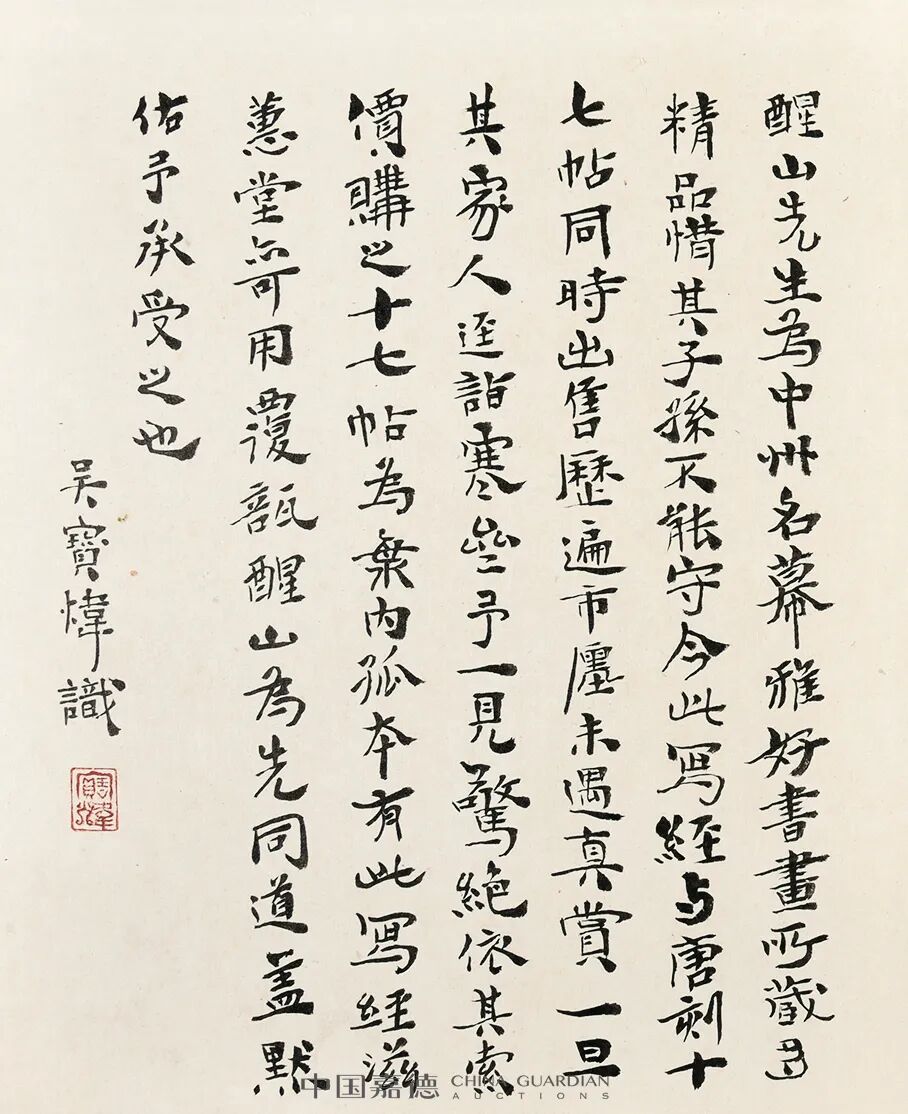 醒山先生為中州名幕雅好書畫所藏
精品惜其子孫不能守今此寫經与唐刻十
七帖同時出售歷遍市廛未遇真賞一旦
其家人逕詣寒予一見驚絕依其索
價購之十七帖為內孤本有此寫經滋
蕙堂亦可用覆瓿醒山為先同道蓋默
佑予承受之也
吳寶煒識
寶煒
中国嘉德 CHINA GUARDIAN AUCTIONS